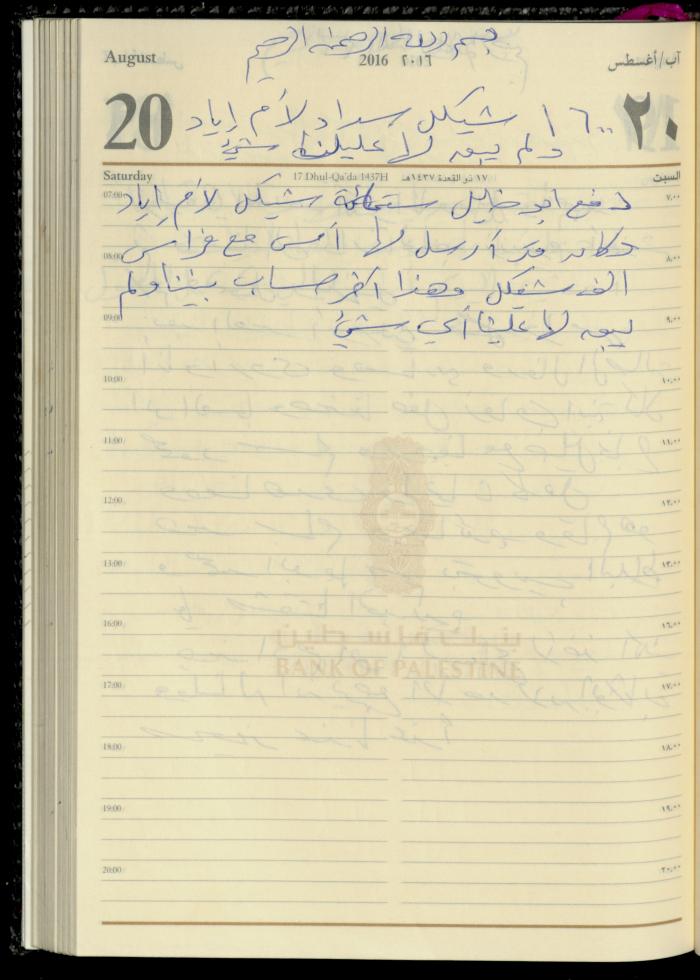 بسم الله الرحمن الرحيم
August
2016 ٢٠١٦
آب/أغسطس
20
١٦٠٠ شيكل سداد لأم إياد
٢٠
ولم يبق لها علينا شيئ
Saturday
17 Dhul-Qa'da 1437H
١٧ ذو القعدة ١٤٣٧هـ
السبت
07:00 ٧,٠٠
دفع ابو خليل ستمائة شيكل لأم إياد
وكان قد أرسل لها أمس مع فراس
08:00 ٨,٠٠
الف شيكل وهذا اخر حساب بيننا ولم
09:00 ٩,٠٠
يبق لها علينا أي شيئ
10:00 ١٠,٠٠
11:00 ١١,٠٠
12:00 ١٢,٠٠
13:00 ١٣,٠٠
16:00 ١٦,٠٠
بنك فلسطين
BANK OF PALESTINE
17:00 ١٧,٠٠
18:00 ١٨,٠٠
19:00 ١٩,٠٠
20:00 ٢٠,٠٠